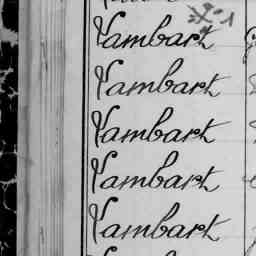 Vambart
Vambart
Vambart
Vambart
Vambart